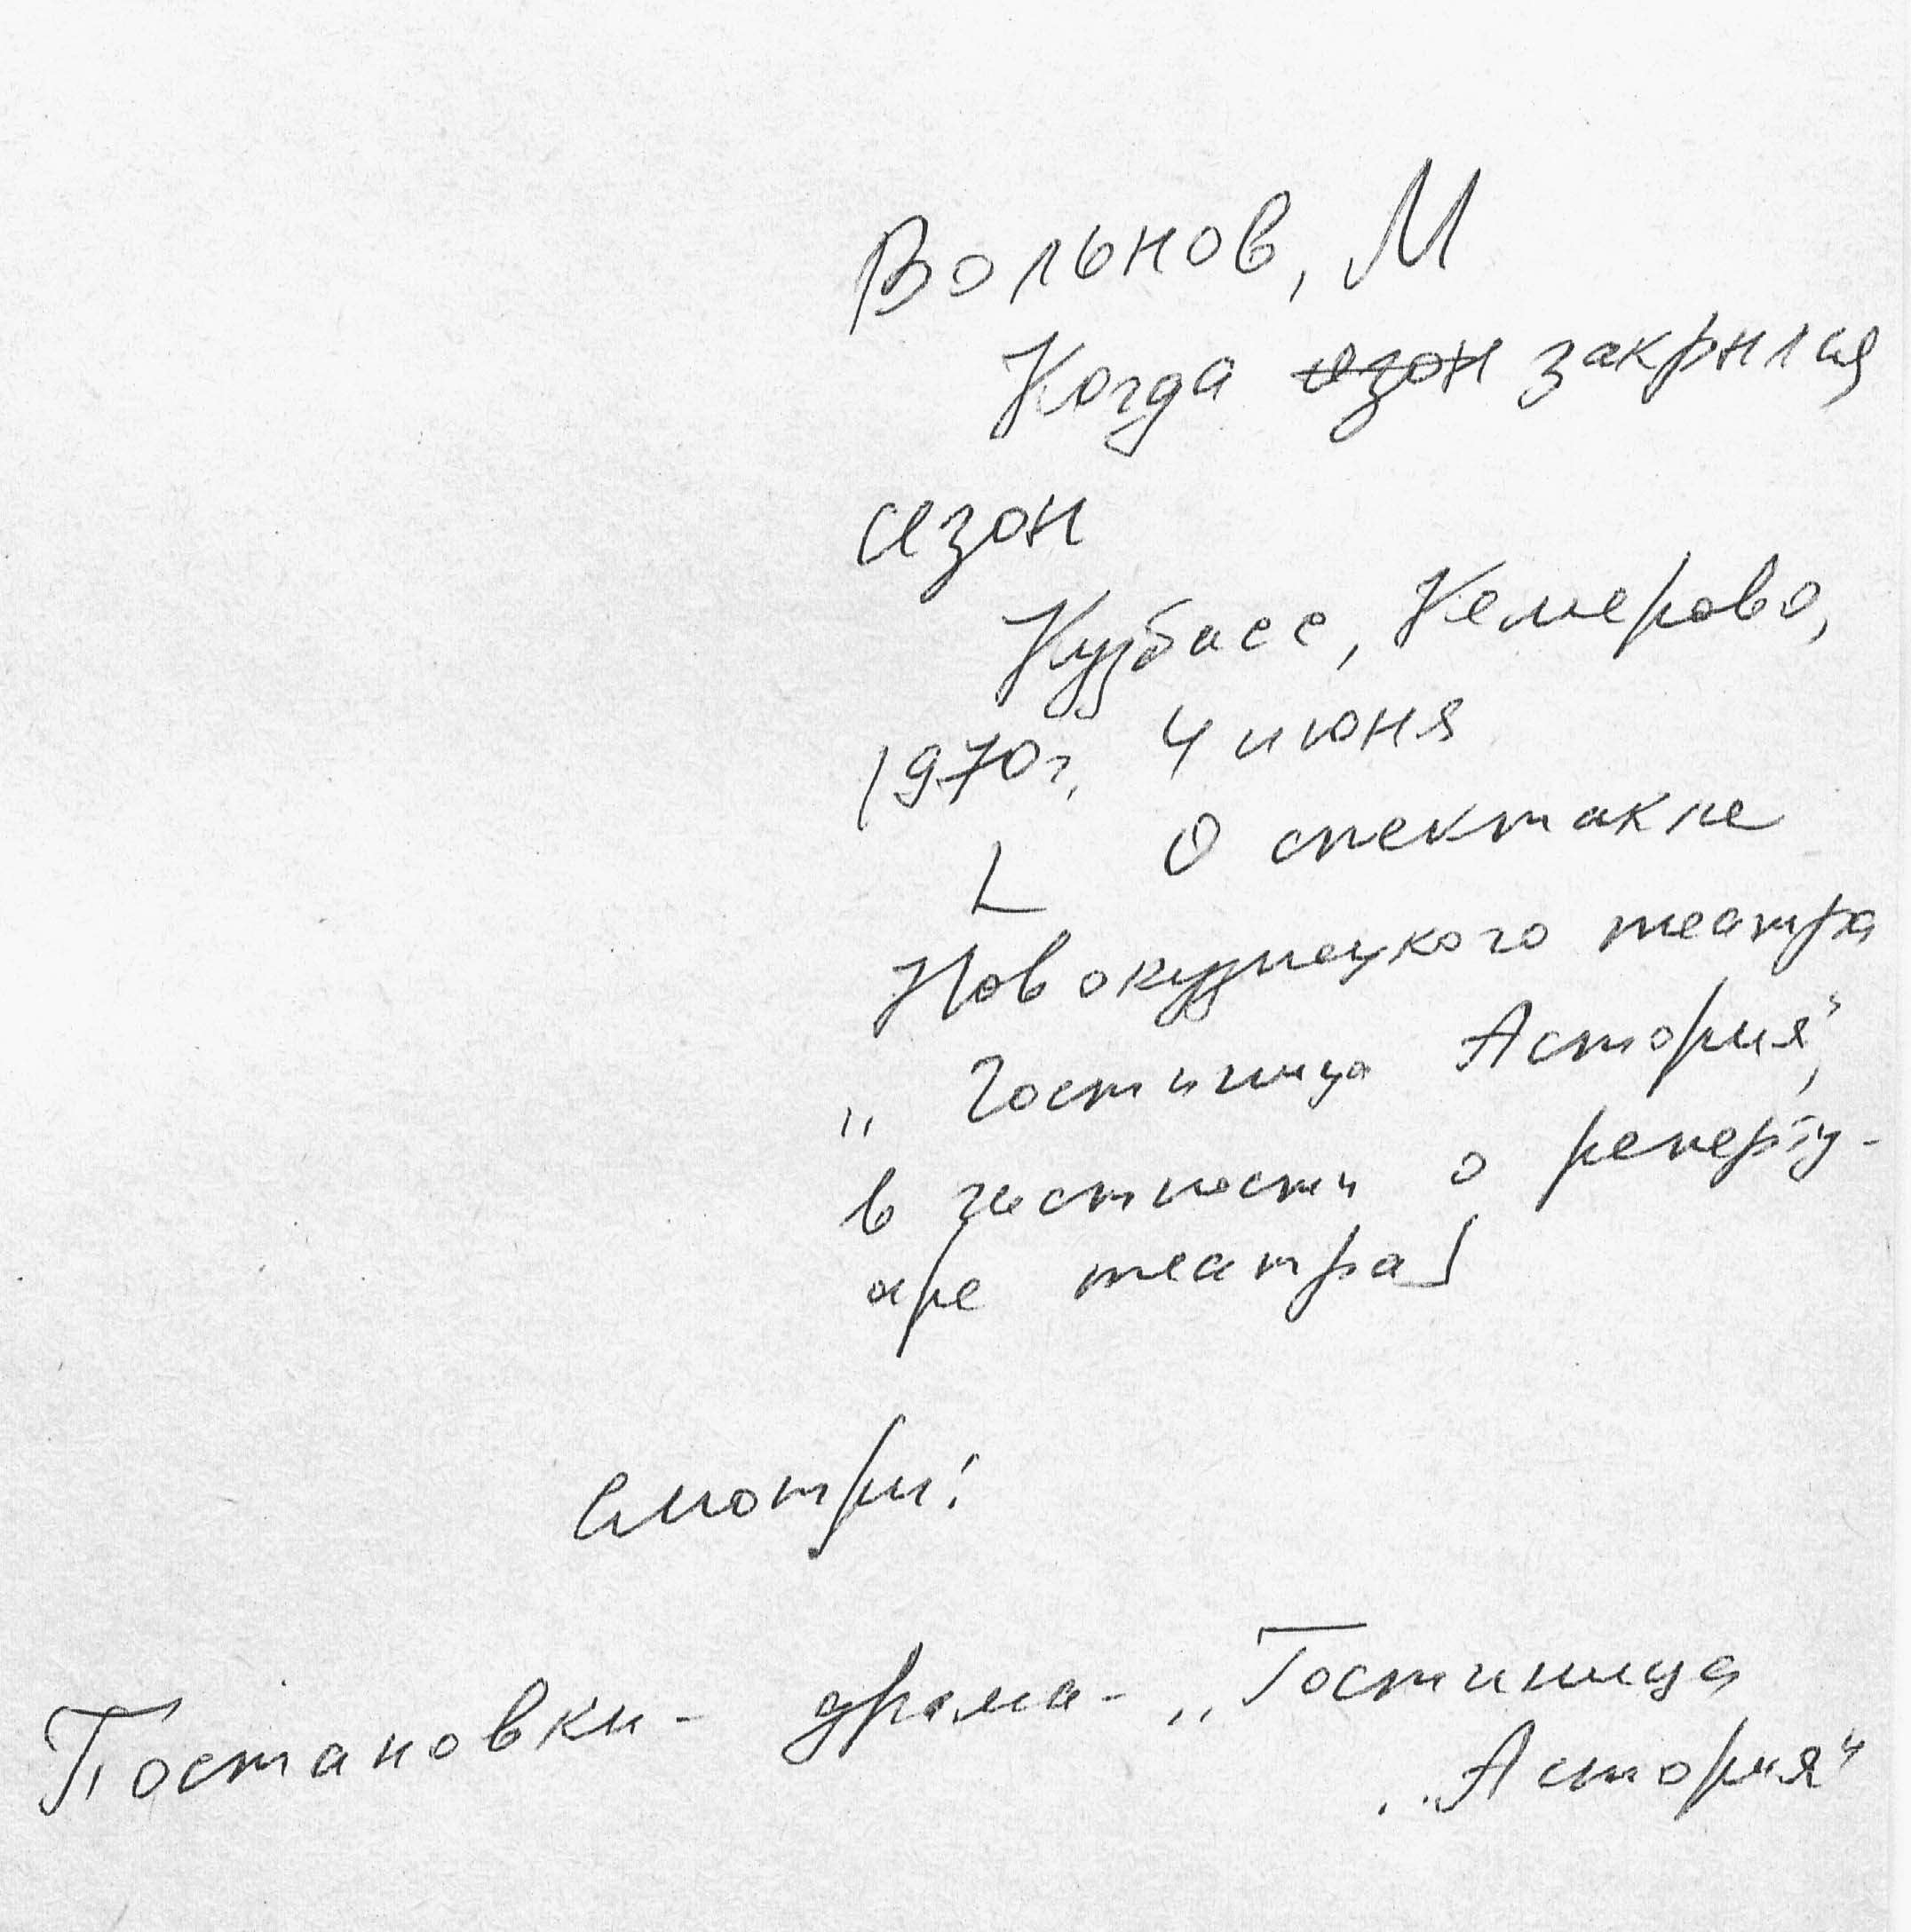 Вольнов, М
Когда сезон закрылся
сезон
Кузбасс, Кемерово,
1970г, 4 июня
[ О спектакле
Новокузнецкого театра
„Гостиница Астория",
в частности о реперту-
аре театра]
Смотри:
Постановки - драма - „Гостиница
„Астория"